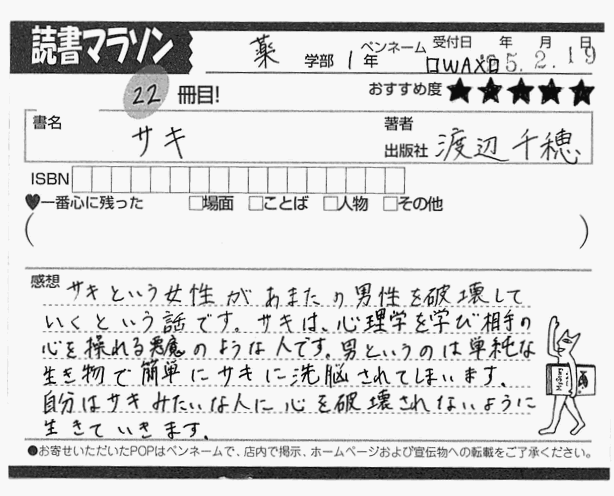 読書マラソン
薬 学部 1年 ペンネーム □WAX□ 受付日 年 月 日
5.2.19
22 冊目!
おすすめ度 ★★★★★
書名 サキ
著者 出版社 渡辺千穂
ISBN
♥一番心に残った □場面 □ことば □人物 □その他
( )
感想
サキという女性があまたの男性を破壊して
いくという話です。サキは、心理学を学び相手の
心を操れる悪魔のような人です。男というのは単純な
生き物で簡単にサキに洗脳されてしまいます。
自分はサキみたいな人に心を破壊されないように
生きていきます。
●お寄せいただいたPOPはペンネームで、店内で掲示、ホームページおよび宣伝物への転載をご了承ください。